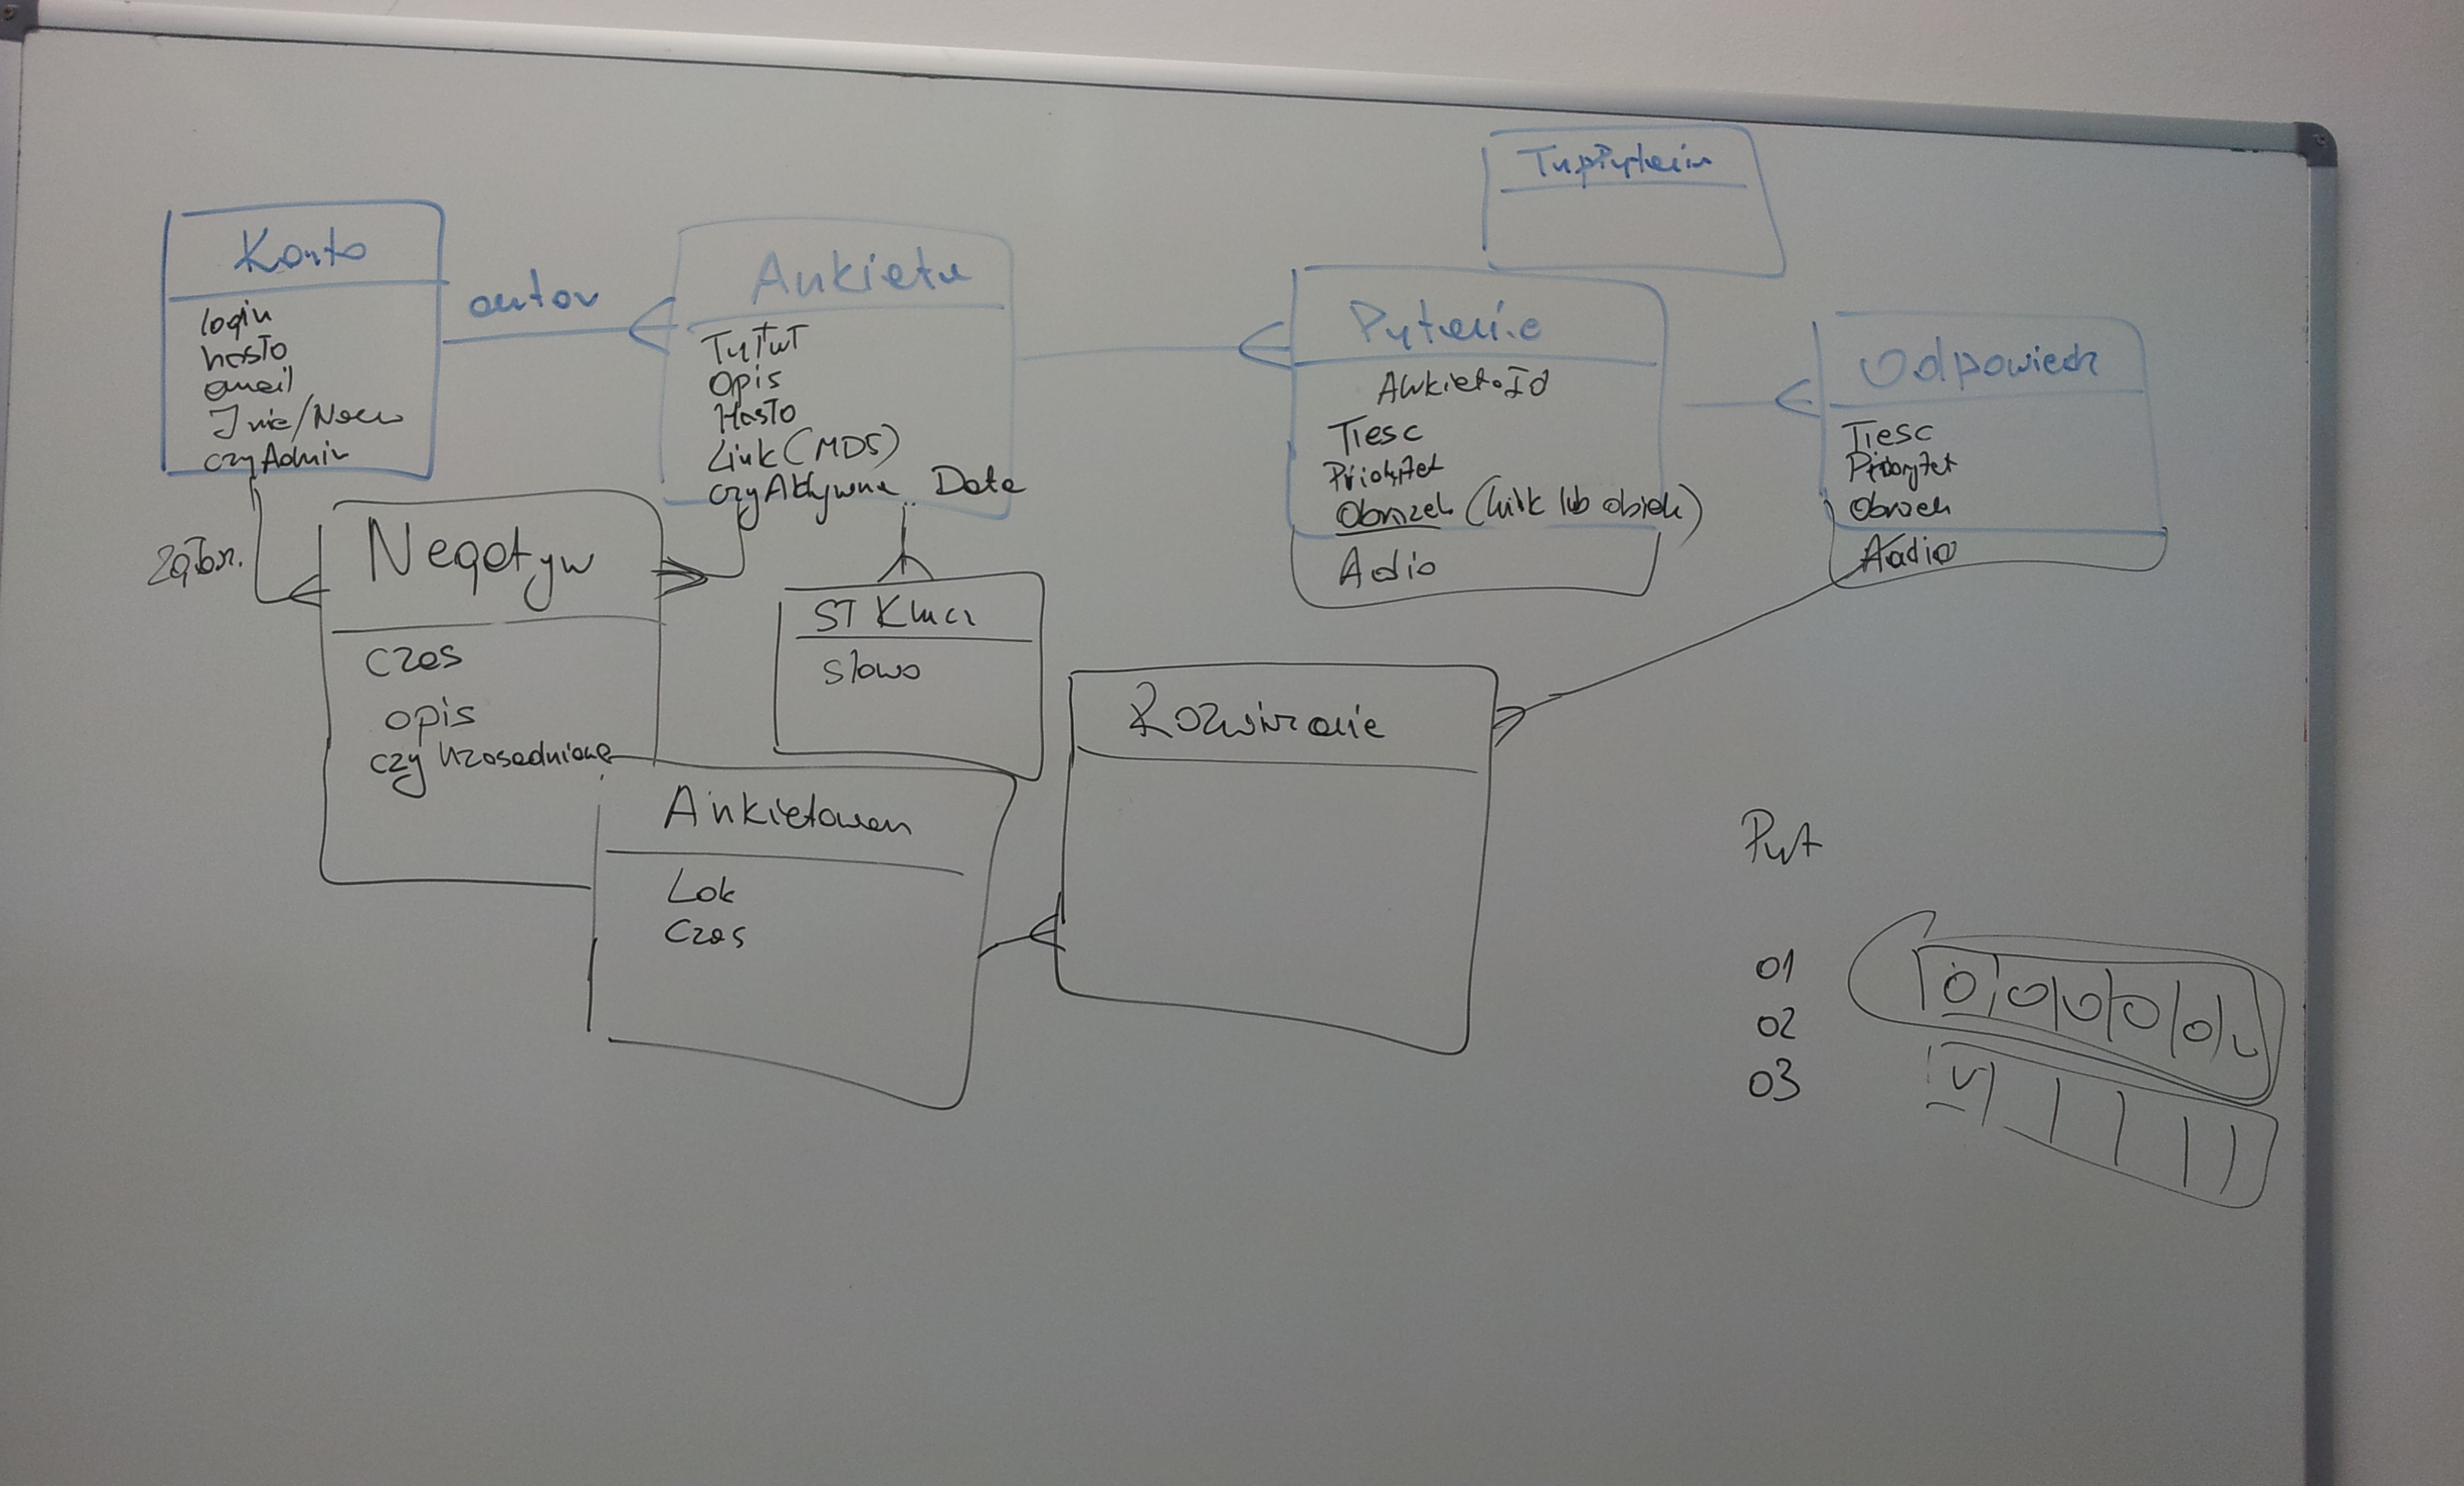 Konto
login
hasło
email
Imie/Nazw
czyAdmin
autor
Ankieta
Tytuł
Opis
Hasło
Link (MD5)
czyAktywna .. Data
TypPytania
Pytanie
AnkietaId
Tresc
Priorytet
Obrazek (link lub obiekt)
Audio
Odpowiedz
Tresc
Priorytet
Obrazek
Audio
Zgłosz.
Negatyw
czas
opis
czy Uzasadnione
Sł Klucz
Słowo
Ankietowan
Lok
Czas
Rozwiazanie
Pyt
01
02
03